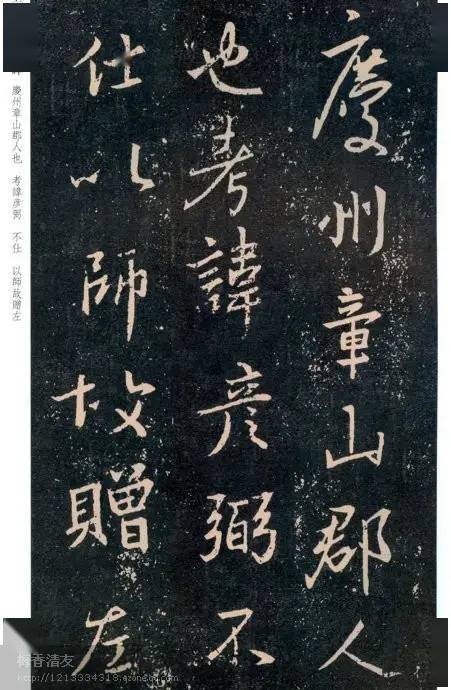 慶州章山郡人
也考諱彦弼不
仕以師故贈左
慶州章山郡人也　考諱彦弼　不仕　以師故贈左
梅香清友
http://1213334318.qzone.qq.com